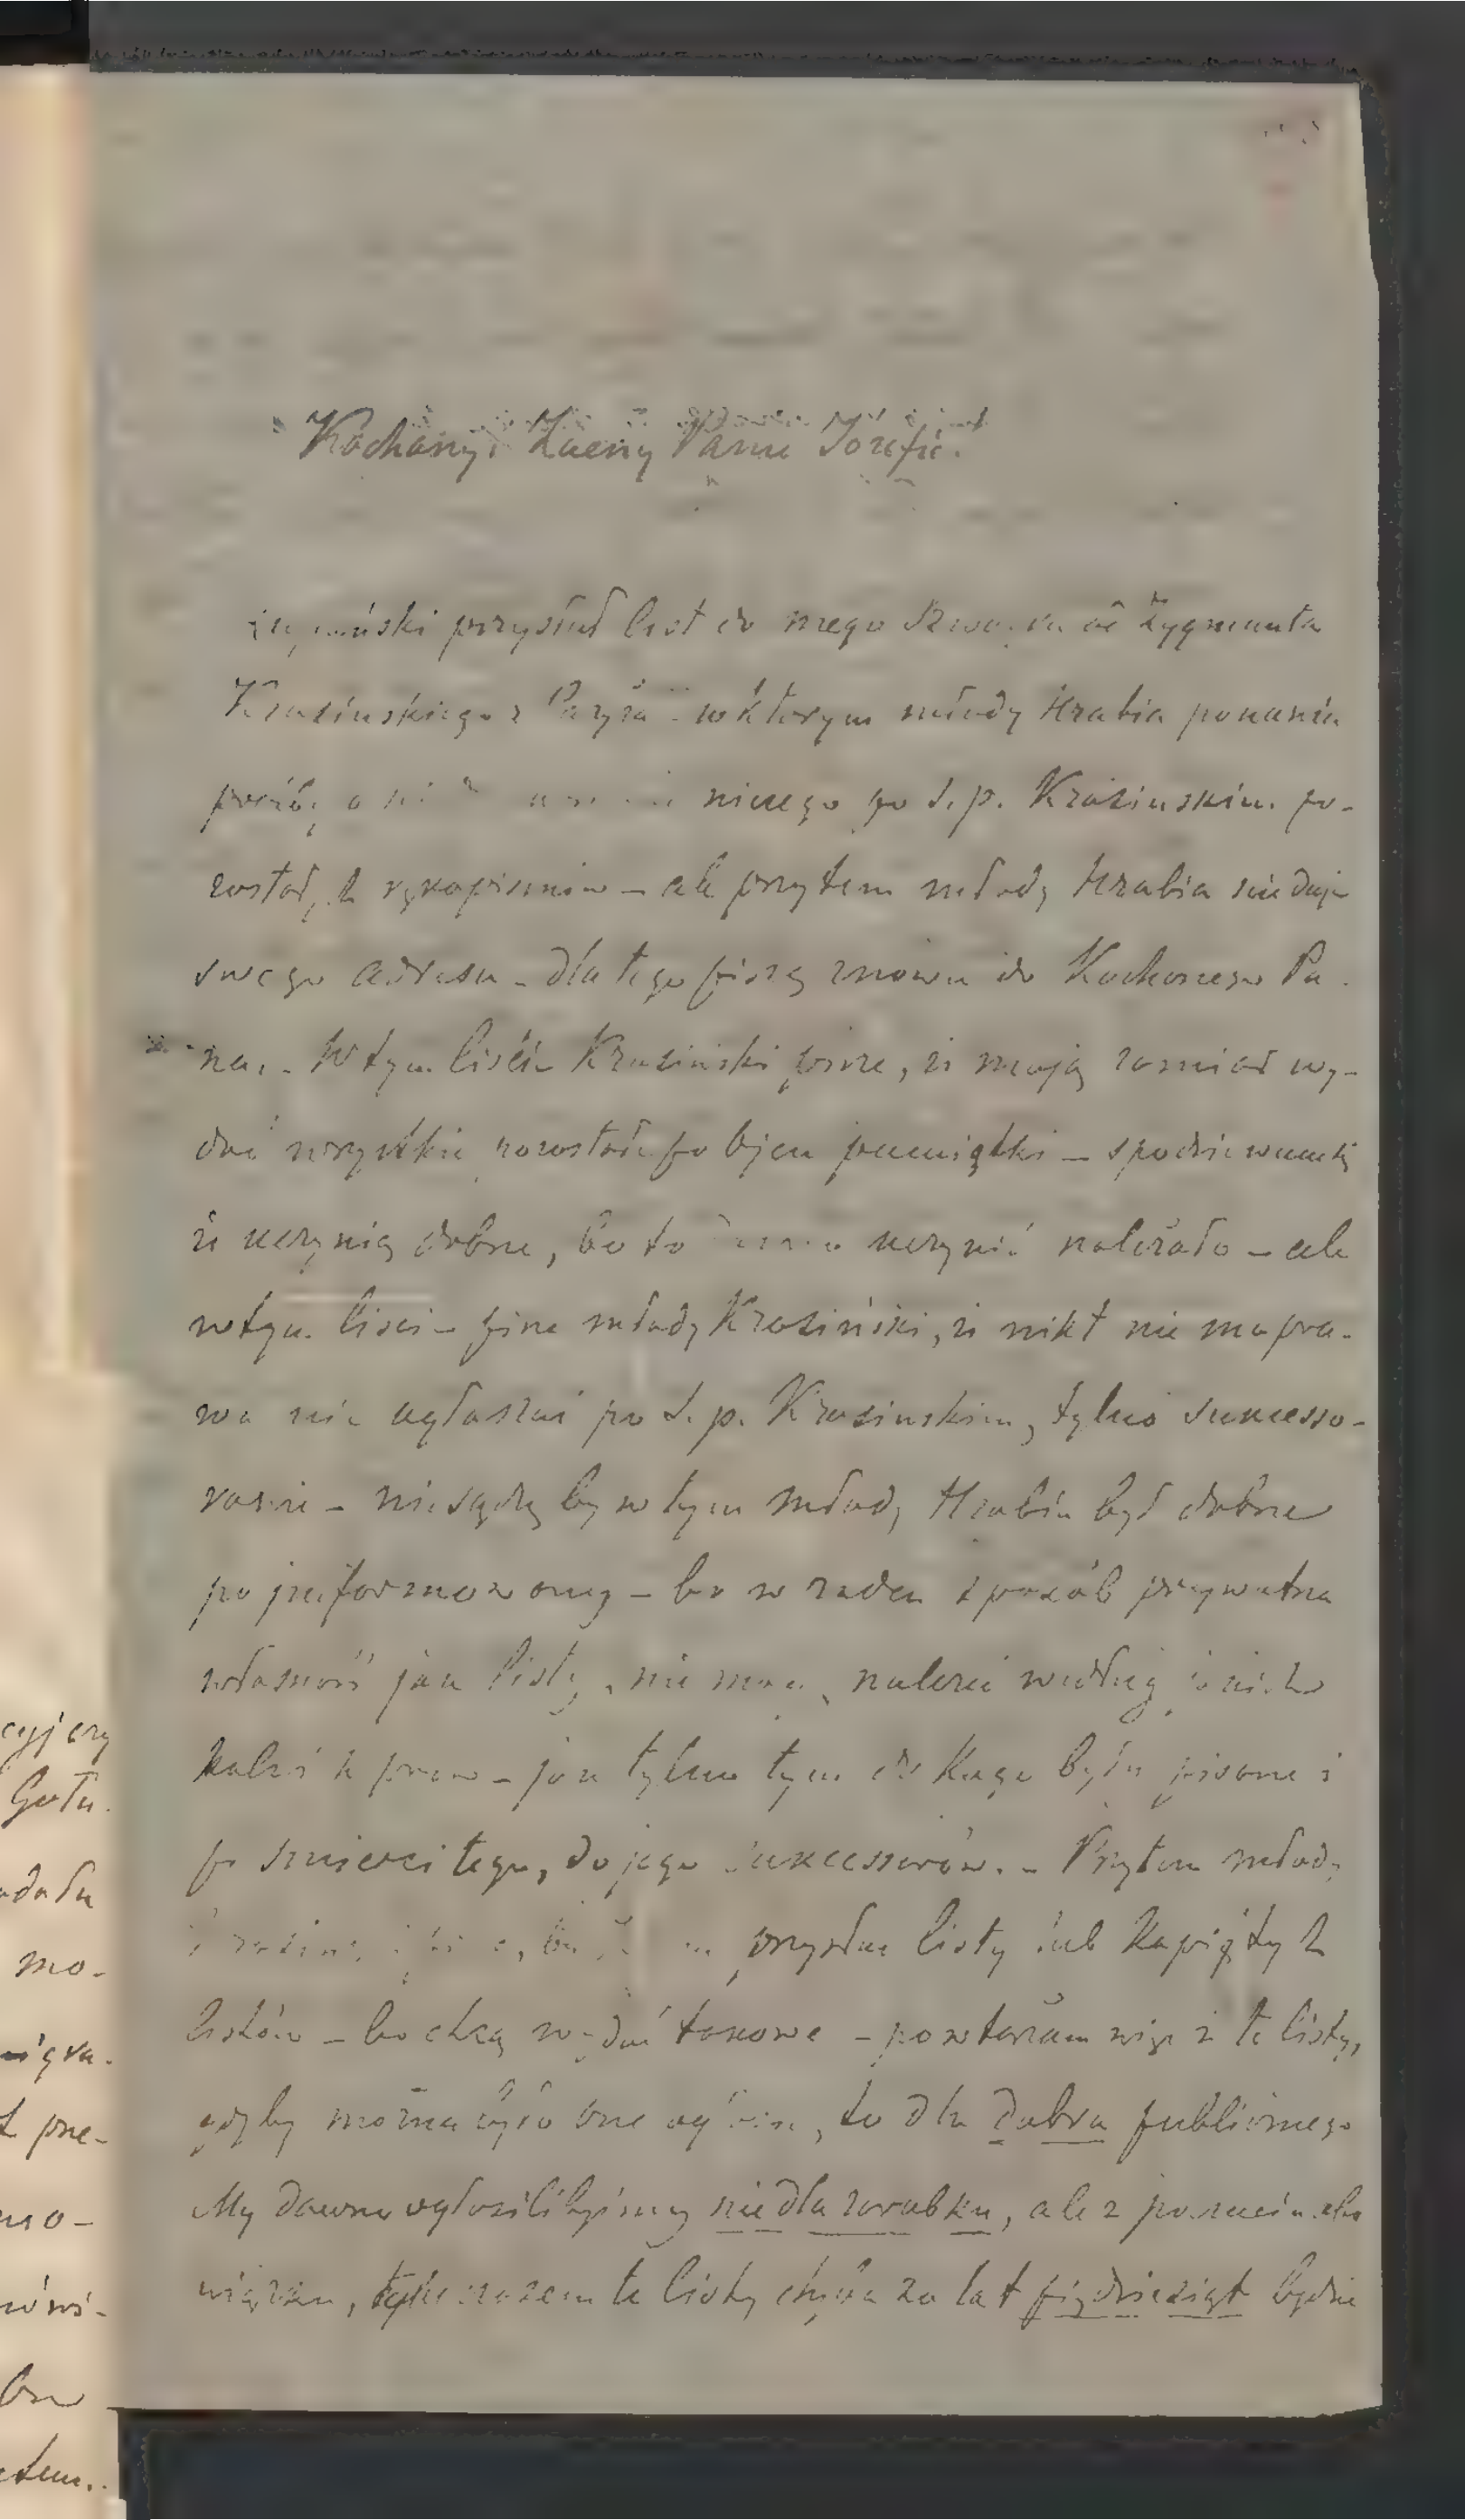 Kochany i Zacny Panie Józefie.
przysłał list do mego od Zygmunta
Krasińskiego z Paryża w którym młody Hrabia ponawia
prośbę o niczego po ś.p. Krasinskim po-
zostałych rękopismów – ale przytem młody Hrabia nie daje
swego adresu – dla tego piszę znowu do Kochanego Pa-
na. – W tym liście Krasiński pisze, iż mają zamiar wy-
dać wszystkie pozostałe po Ojcu pamiątki – spodziewam się
iż uczynią dobrze, bo to uczynić należało – ale
w tym liście pisze młody Krasiński, iż nikt nie ma pra-
wa nic ogłaszać po ś.p. Krasinskim, tylko sukcesso-
rowie – nie sądzę by w tym młody Hrabia był dobrze
poinformowany – bo w żaden sposób prywatna
własność jak listy, nie może należeć według
praw – jak tylko tym do kogo były pisane i
po śmierci tego, do jego sukcessorów. – Przytem młody
przysłać listy lub kopię tych
listów – bo chcą wydać takowe – powtarzam więc iż te listy,
gdyby można było one to dla dobra publicznego
My dawno ogłosilibyśmy nie dla zarobku, ale z poczucia obo
wiązku, tymczasem te listy chyba za lat piędziesiąt będzie
cyj czy
była
adału
mo-
pne-
mo-
ówi-